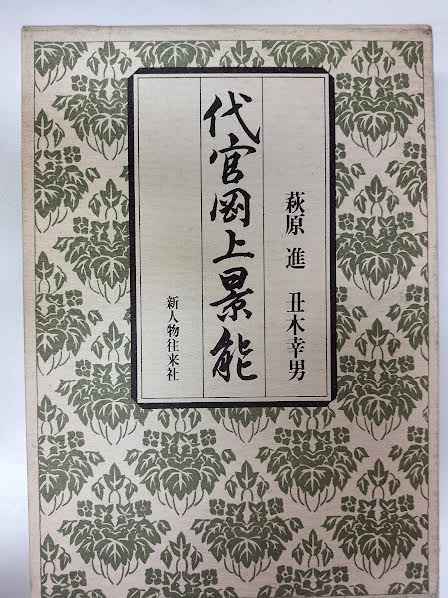 萩原 進 丑木幸男
代官岡上景能
新人物往来社